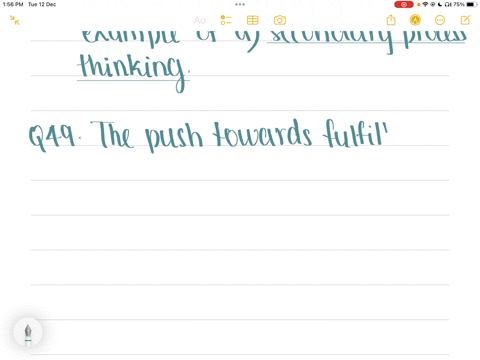 1:56 PM Tue 12 Dec
75%
Aa
example of a) secondary process
thinking.
Q49. The push towards fulfil